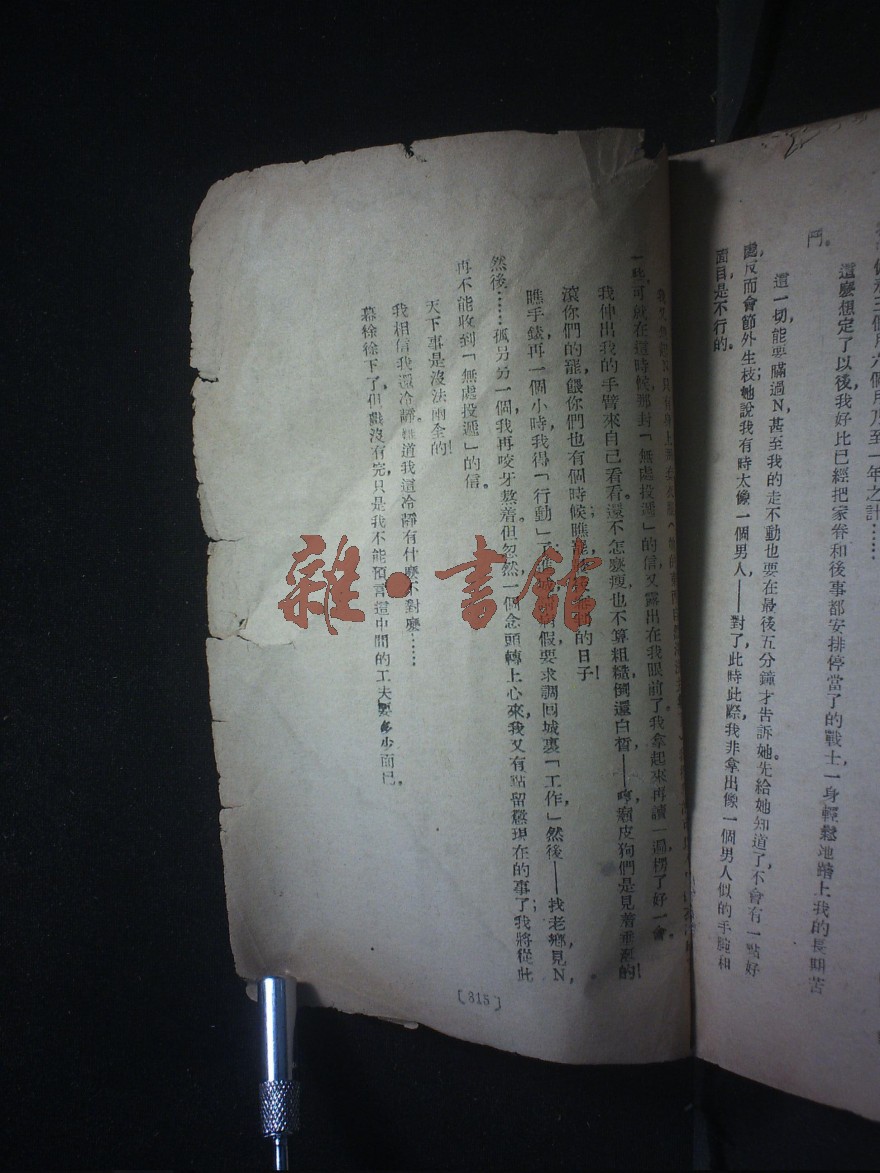 鬥。
這麼想定了以後,我好比已經把家眷和後事都安排停當了的戰士,一身輕鬆地踏上我的長期苦
這一切,能要瞞過N,甚至我的走不動也要在最後五分鐘才告訴她。先給她知道了,不會有一點好
處,反而會節外生枝;她說我有時太像一個男人——對了,此時此際,我非拿出像一個男人似的手腕和
面目是不行的。
一些,可就在這時候,那封「無處投遞」的信又露出在我眼前了。我拿起來再讀一遍,楞了好一會。
我伸出我的手臂來自己看看。還不怎麼瘦,也不算粗糙,倒還白皙——哼,癩皮狗們是見着垂涎的!
滾你們的罷,餵你們也有個時候;瞧罷,的日子!
瞧手錶,再一個小時我得「行動」了。假,要求調回城裏「工作」,然後——找老鄉,見N,
然後……孤另另一個,我再咬牙熬着。但忽然一個念頭轉上心來,我又有點留戀現在的事了;我將從此
再不能收到「無處投遞」的信。
天下事是沒法兩全的!
我相信我還冷靜。難道我這冷靜有什麼不對麼……
幕徐徐下了,但戲沒有完,只是我不能預言這中間的工夫要多少而已。
〔315〕
雜·書館